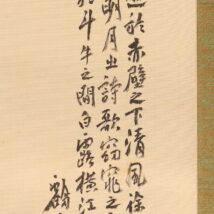 於赤壁之下清風徐
明月之詩歌窈窕之
於斗牛之間白露橫江